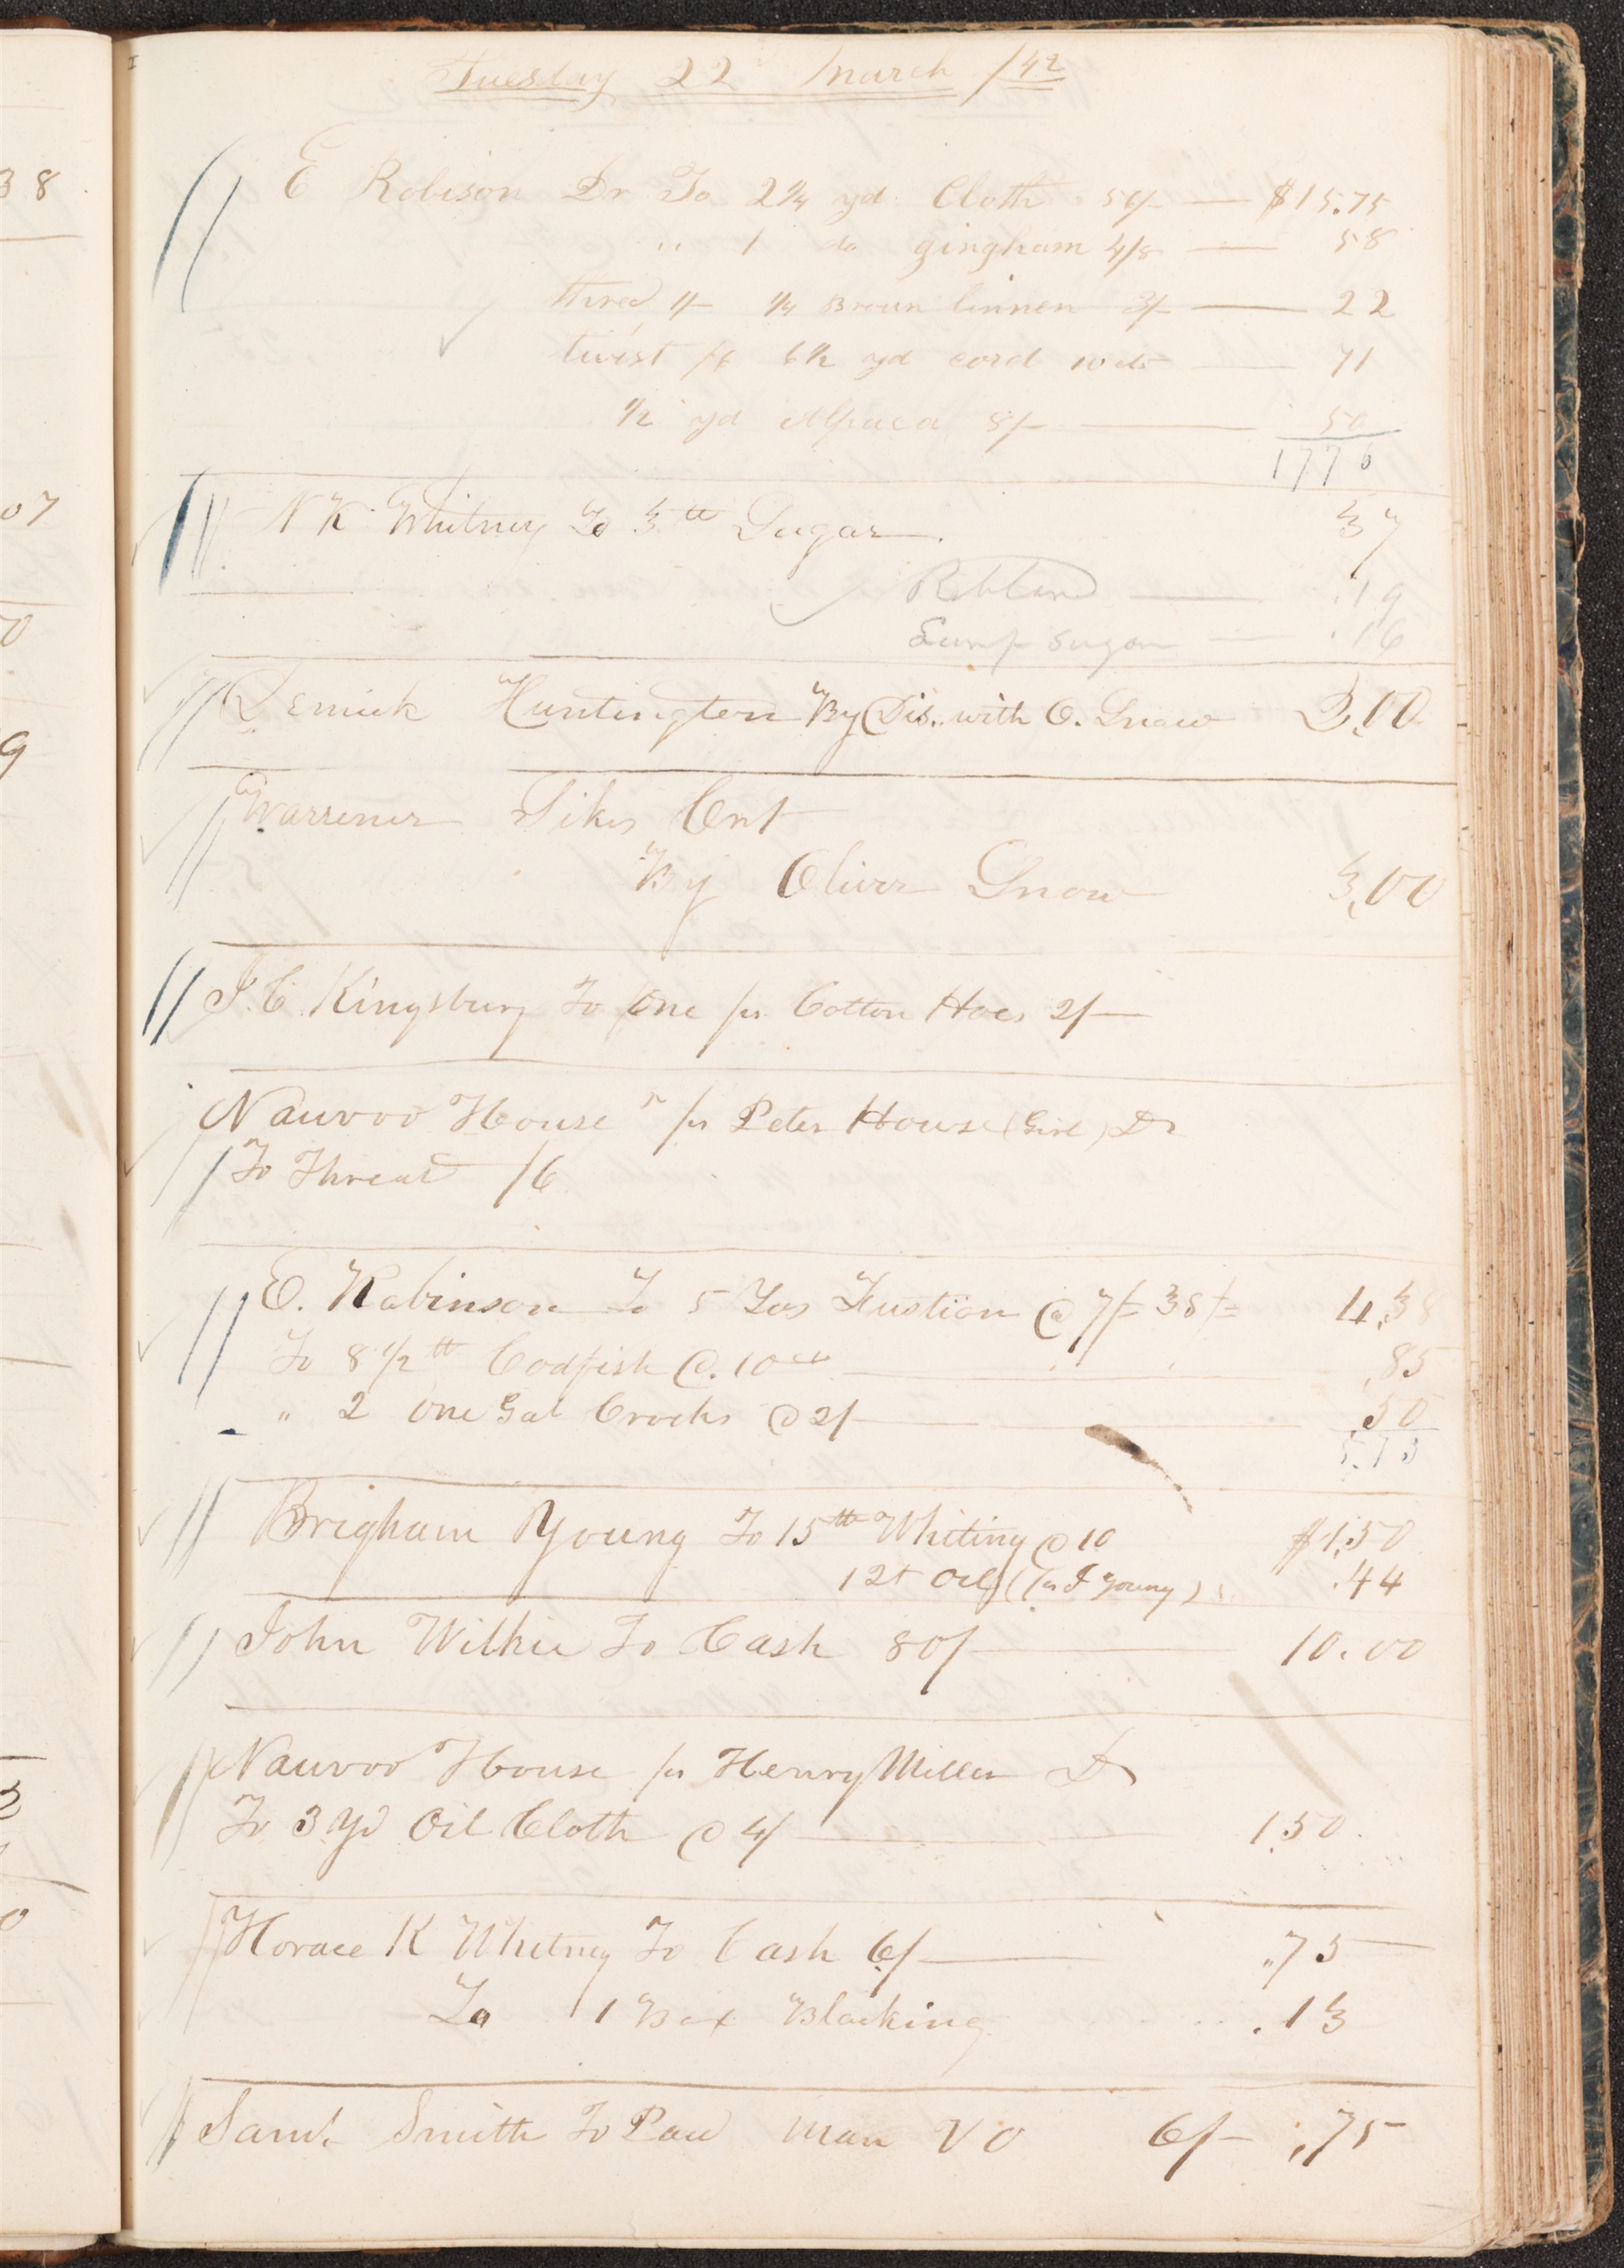 Tuesday 22 March /42
E Robison Dr To 2 1/4 yd Cloth 56/- — $15.75
" 1 do gingham 4/8 — 58
thred 1/- 1/4 Broun linnen 3/- — 22
twist /6 6 1/2 yd cord 10 cts — 71
1/2 yd Alpaca 8/- — 50
1776
N K Whitney To 3 lb Sugar. 37
— .19
Lump Sugar — .16
Demick Huntington By Dis. with O. Snow 3,00
Warrener Sikes Cnt
By Oliver Snow 3,00
J. C. Kingsbury To One pr Cotton Hoes 2/-
Nauvoo House " pr Peter Howse (Girl) Dr
To Thread /6
E. Robinson To 5 Yds Fustion @ 7/- 35/- 4,38
To 8 1/2 lb Codfish @. 10 cts — ,85
" 2 One Gal Crocks @ 2/- — ,50
5.73
Brigham Young To 15 lb Whiting @ 10 $1,50
1 2t Oil (pr J Young) .44
John Wilkie To Cash 80/- — 10.00
Nauvoo House pr Henry Miller Dr
To 3 Yd Oil Cloth @ 4/ — 1.50.
Horace K Whitney To Cash 6/- — .75
To 1 Box Blacking .13
Saml. Smith To Paid man V O 6/- ,75
38
07
0
9
3
0